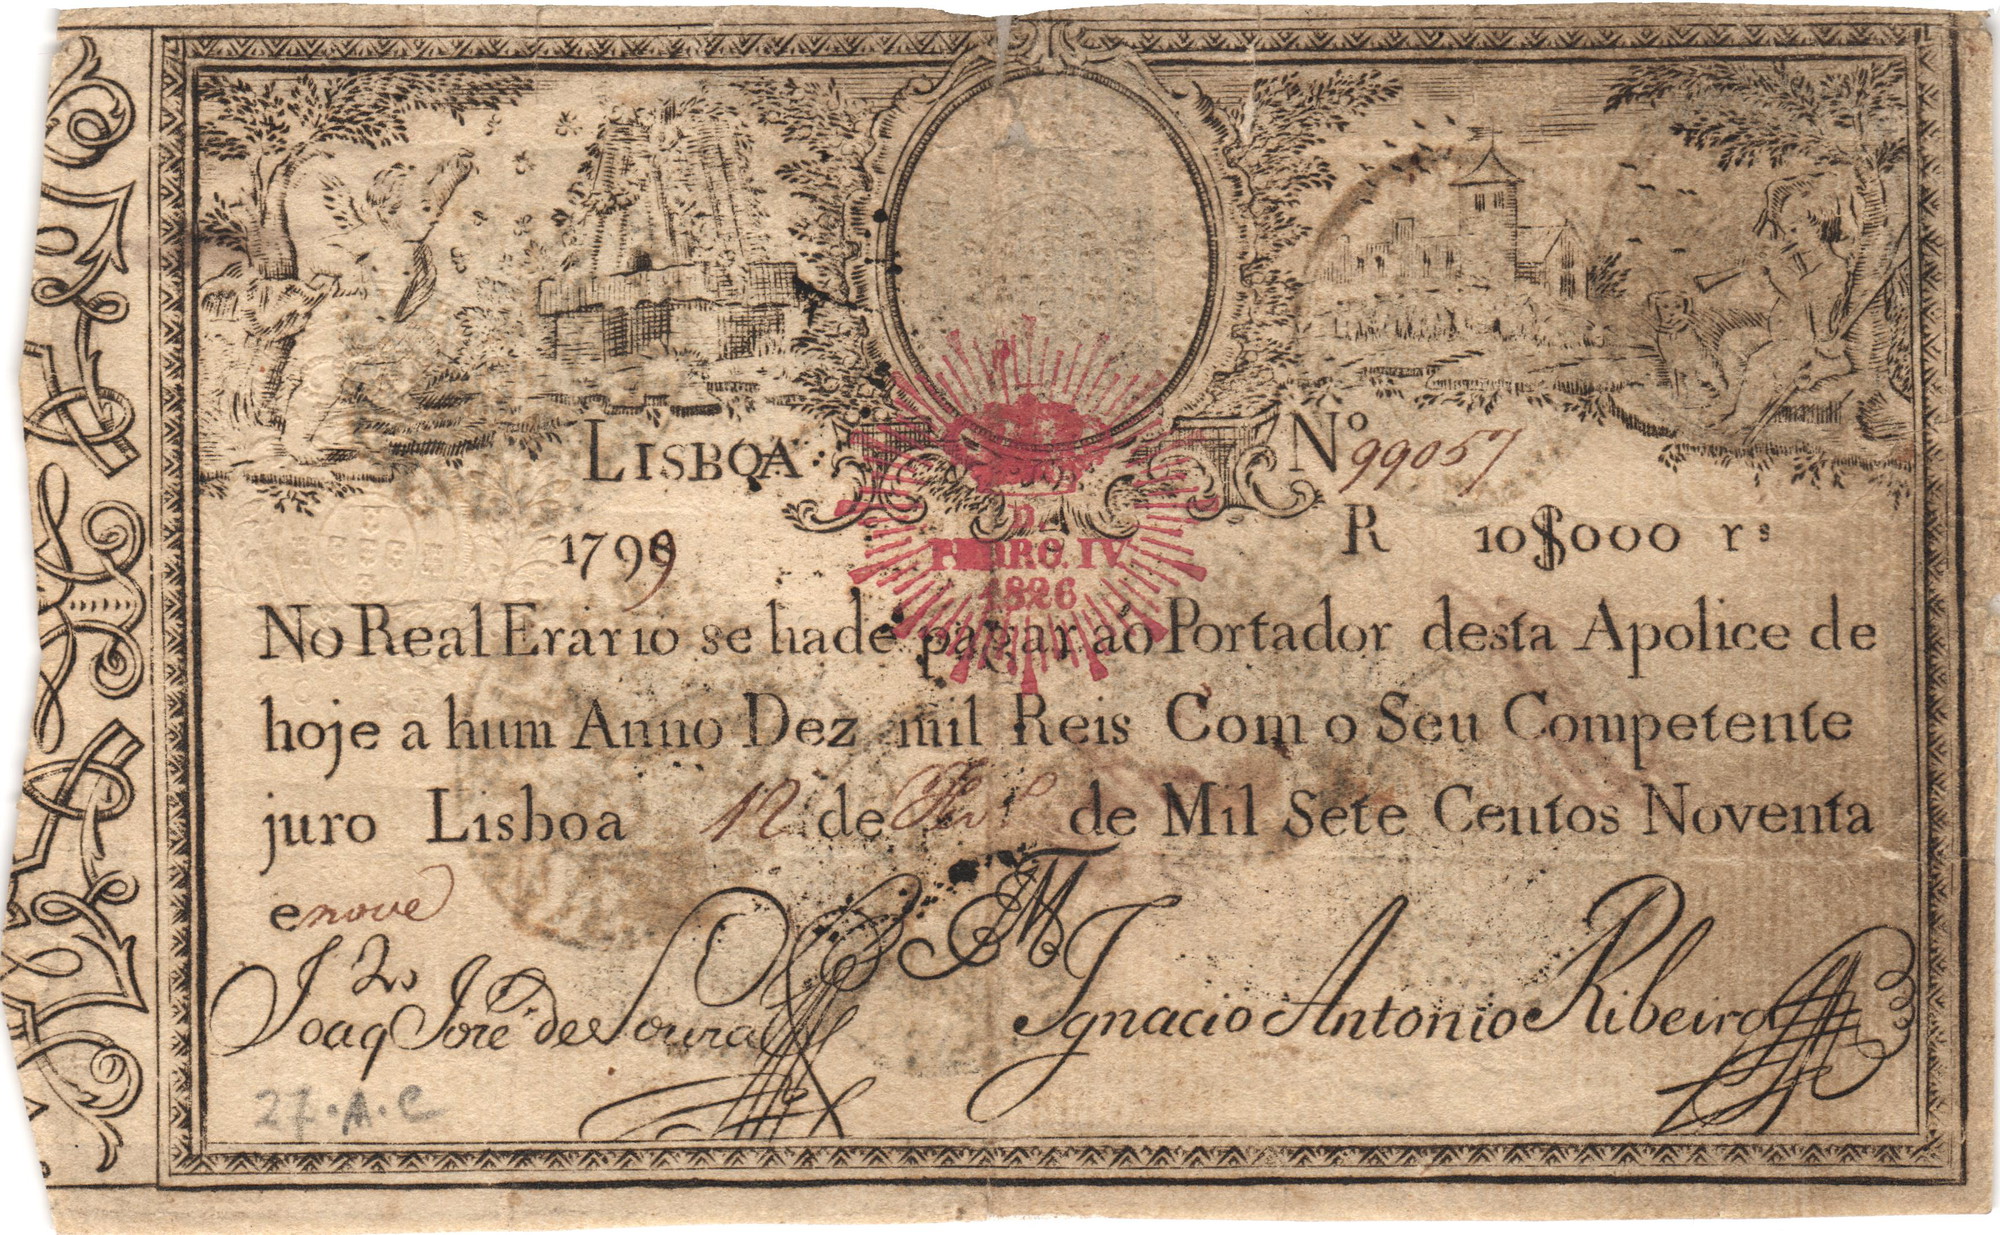 LISBOA
Nº 99057
1799
R 10$000 rs
D.
PEDRO. IV
1826
No Real Erario se hade pagar ao Portador desta Apolice de
hoje a hum Anno Dez mil Reis Com o Seu Competente
juro Lisboa 12 de de Mil Sete Centos Noventa
e nove
Joaq Jose de Souza
Ignacio Antonio Ribeiro
27.A.C